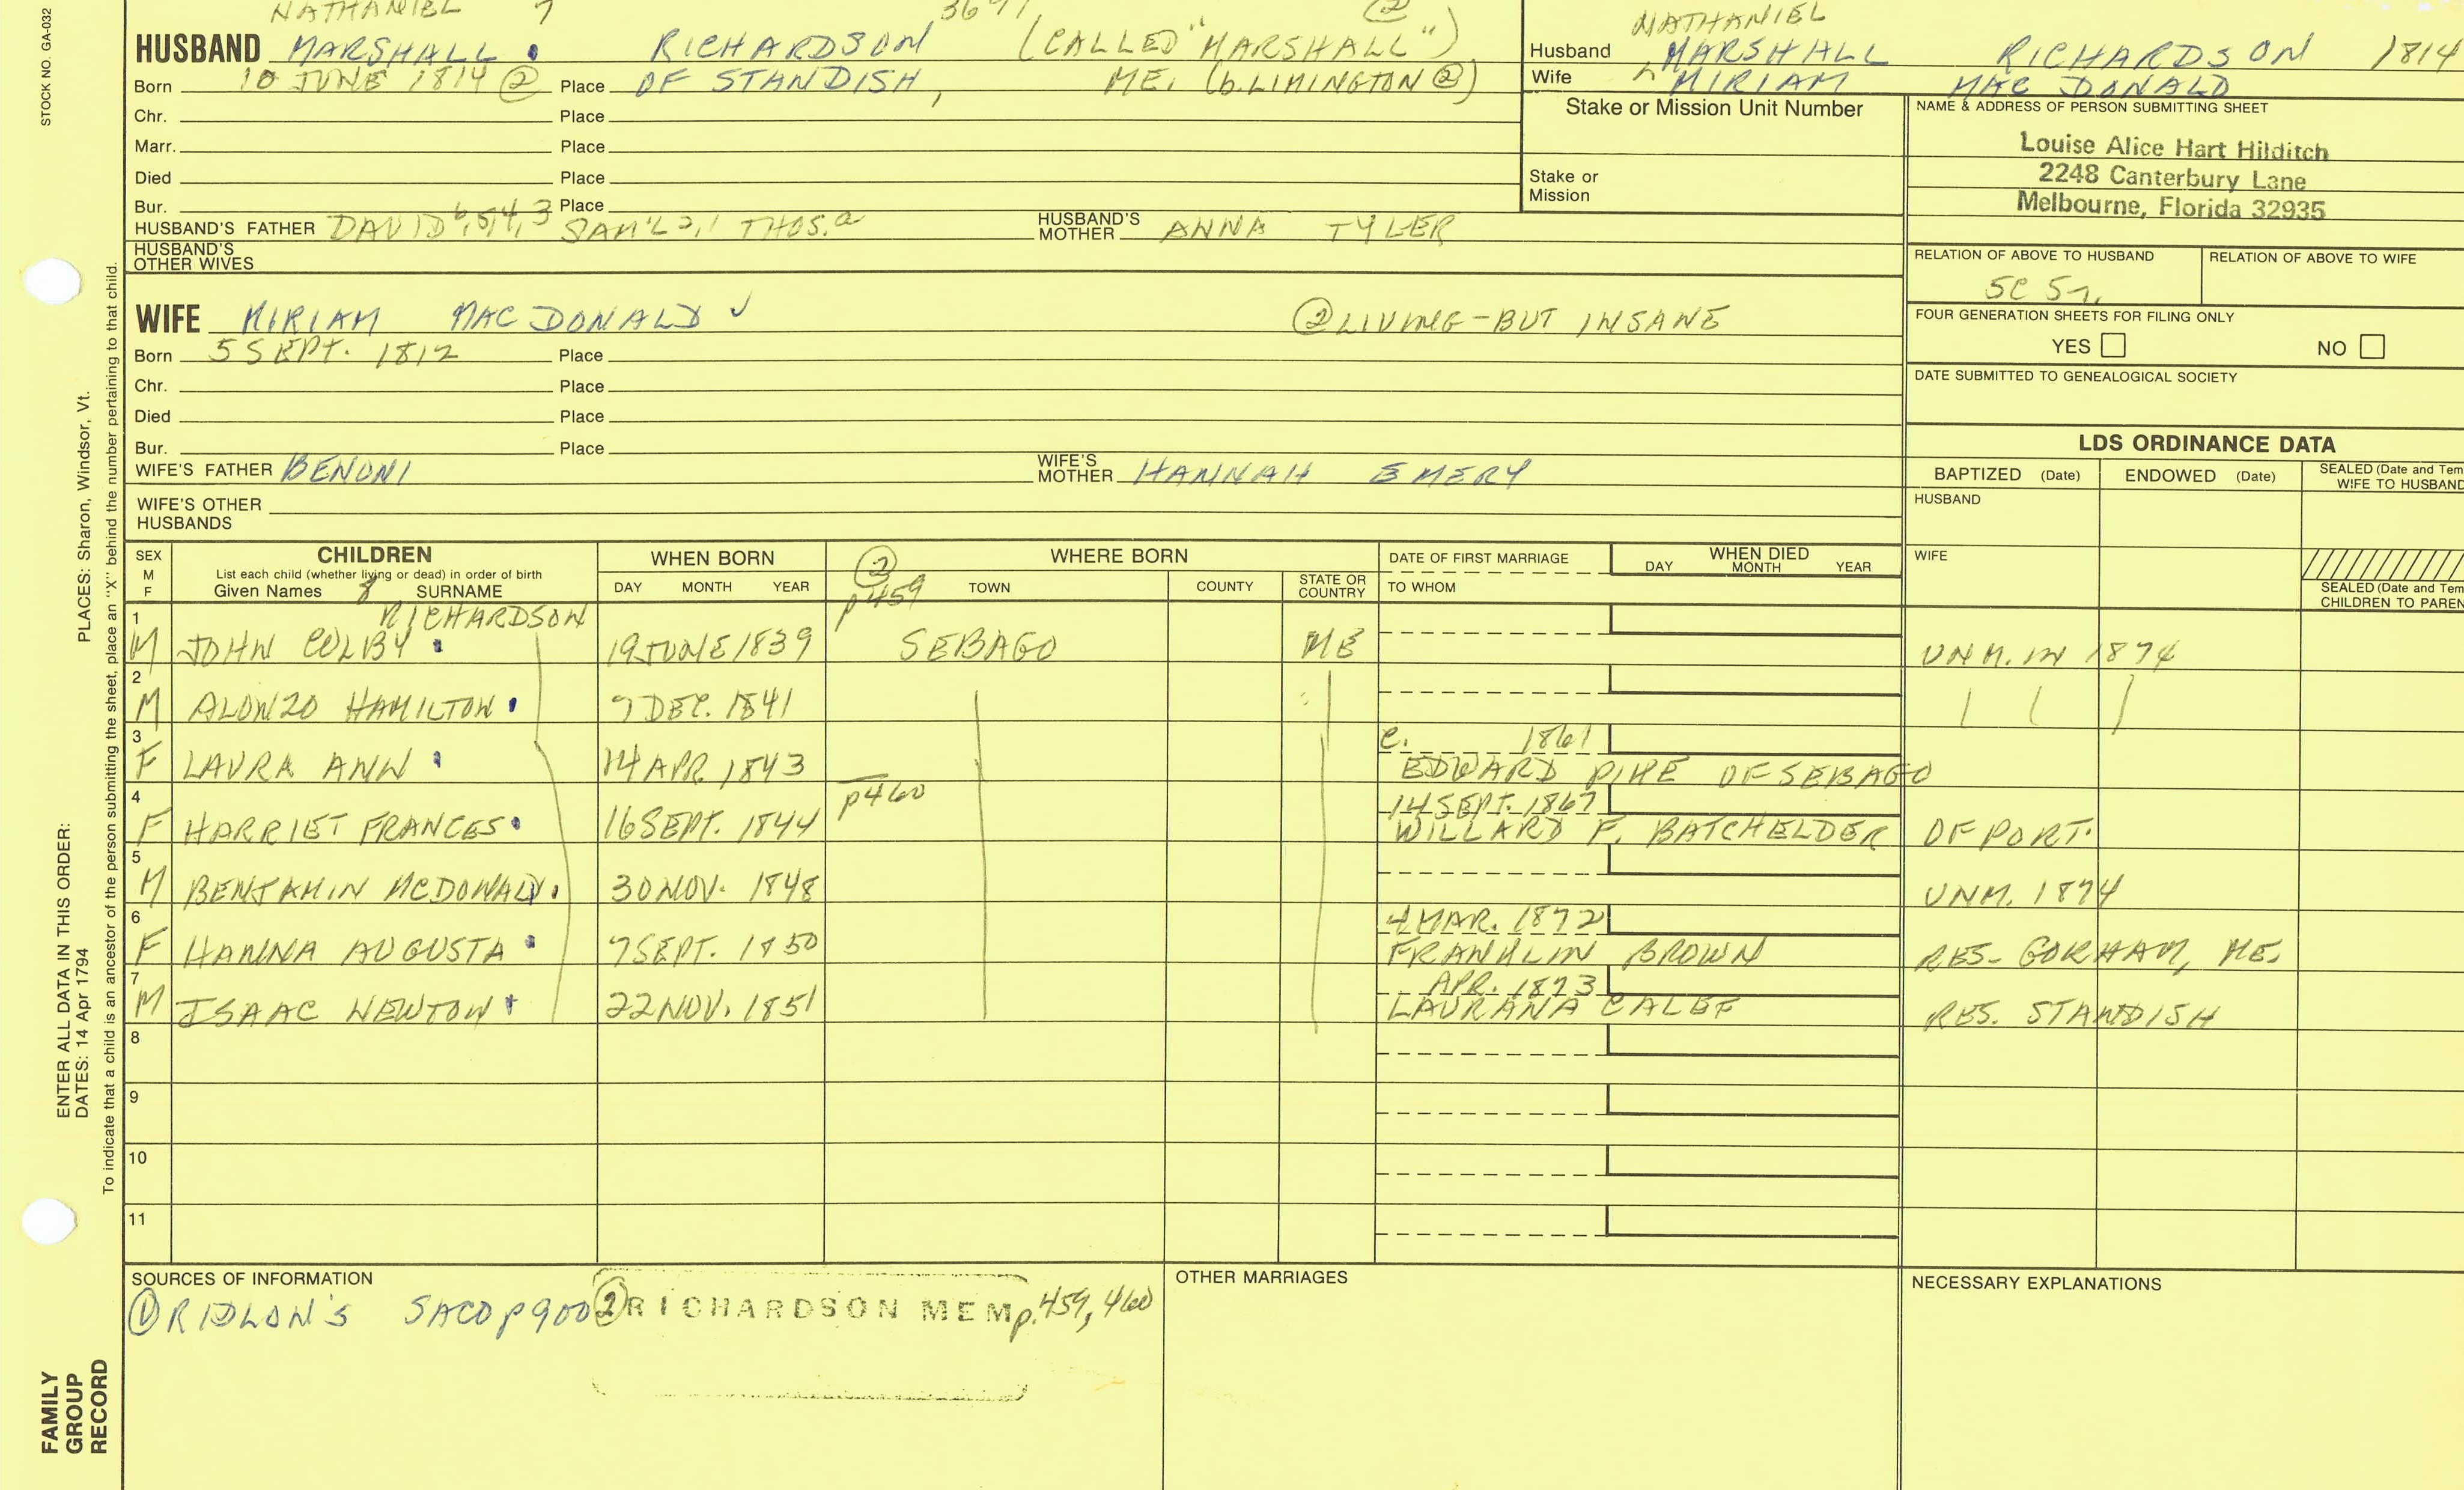 STOCK NO. GA-032
NATHANIEL 7
HUSBAND MARSHALL RICHARDSON (CALLED "MARSHALL")
Born 10 JUNE 1814 ② Place OF STANDISH, ME. (b. LIMINGTON ②)
Chr. Place
Marr. Place
Died Place
Bur. Place
HUSBAND'S FATHER DAVID 6,5,4,3 SAM'L 2,1 THOS. a HUSBAND'S MOTHER ANNA TYLER
HUSBAND'S OTHER WIVES
WIFE MIRIAM MAC DONALD ✓ ② LIVING - BUT INSANE
Born 5 SEPT. 1812 Place
Chr. Place
Died Place
Bur. Place
WIFE'S FATHER BENONI WIFE'S MOTHER HANNAH EMERY
WIFE'S OTHER HUSBANDS
NATHANIEL
Husband ^ MARSHALL RICHARDSON 1814
Wife MIRIAM MAC DONALD
Stake or Mission Unit Number
Stake or Mission
NAME & ADDRESS OF PERSON SUBMITTING SHEET
Louise Alice Hart Hilditch
2248 Canterbury Lane
Melbourne, Florida 32935
RELATION OF ABOVE TO HUSBAND RELATION OF ABOVE TO WIFE
5C 5r.
FOUR GENERATION SHEETS FOR FILING ONLY
YES NO
DATE SUBMITTED TO GENEALOGICAL SOCIETY
LDS ORDINANCE DATA
BAPTIZED (Date) ENDOWED (Date) SEALED (Date and Tem WIFE TO HUSBAND
HUSBAND
WIFE
SEALED (Date and Tem CHILDREN TO PAREN
SEX M F CHILDREN WHEN BORN ② WHERE BORN DATE OF FIRST MARRIAGE WHEN DIED
List each child (whether living or dead) in order of birth
Given Names 8 SURNAME DAY MONTH YEAR p459 TOWN COUNTY STATE OR COUNTRY TO WHOM DAY MONTH YEAR
RICHARDSON
1 M JOHN COLBY 19 JUNE 1839 SEBAGO ME UNM. IN 1874
2 M ALONZO HAMILTON 7 DEC. 1841
3 F LAURA ANN 14 APR. 1843 c. 1861
EDWARD PIKE OF SEBAGO
4 F HARRIET FRANCES 16 SEPT. 1844 p460 14 SEPT. 1867
WILLARD F. BATCHELDER OF PORT.
5 M BENJAMIN MCDONALD 30 NOV. 1848 UNM. 1874
6 F HANNA AUGUSTA 7 SEPT. 1850 4 MAR. 1872
FRANKLIN BROWN RES- GORHAM, ME.
7 M ISAAC NEWTON 22 NOV. 1851 APR. 1873
LAURANA CALEF RES. STANDISH
8
9
10
11
SOURCES OF INFORMATION
① RIDLON'S SACO p900 ② RICHARDSON MEM p. 459, 460
OTHER MARRIAGES
NECESSARY EXPLANATIONS
PLACES: Sharon, Windsor, Vt.
To indicate that a child is an ancestor of the person submitting the sheet, place an "X" behind the number pertaining to that child.
ENTER ALL DATA IN THIS ORDER:
DATES: 14 Apr 1794
FAMILY
GROUP
RECORD